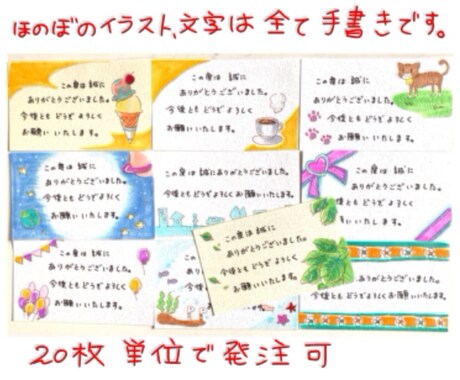 ほのぼのイラスト、文字は全て手書きです。
この度は 誠に
ありがとうございました。
今後とも どうぞ よろしく
お願い いたします。
この度は 誠に
ありがとうございました。
今後とも どうぞ よろしく
お願い いたします。
この度は 誠に
ありがとうございました。
今後とも どうぞ よろしく
お願い いたします。
この度は 誠に
ありがとうございました。
今後とも どうぞ よろしく
お願い いたします。
この度は 誠にありがとうございました。
今後とも どうぞよろしく お願いいたします。
この度は 誠に
ありがとうございました。
今後とも どうぞ よろしく
いたします。
この度は 誠に
ありがとうございました。
今後とも どうぞ よろしく
お願い いたします。
この度は 誠に
ありがとうございました。
今後とも どうぞ よろしく
お願い いたします。
ありがとうございました。
今後とも どうぞ よろしく
お願い いたします。
20枚単位で発注可